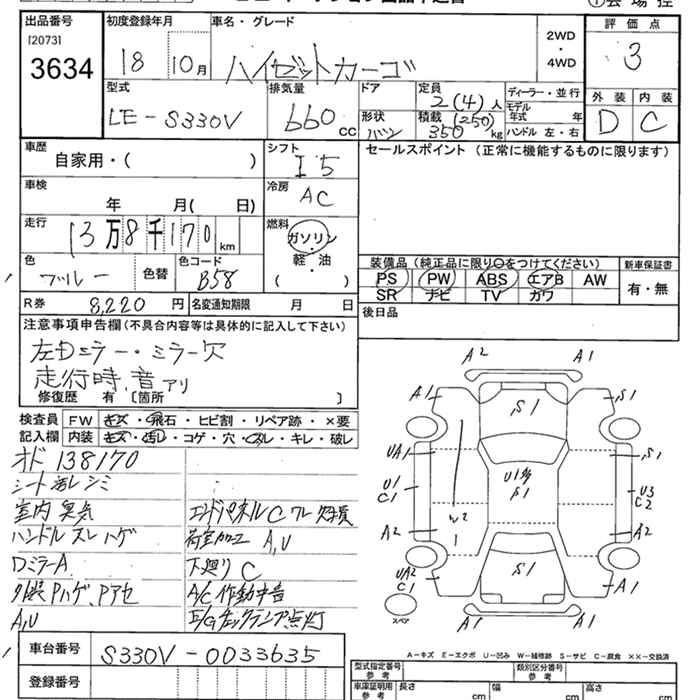 出品番号
[2073]
3634
初度登録年月
18 10月
車名・グレード
ハイゼットカーゴ
2WD
・
4WD
評価点
3
外装 内装
D C
型式
LE-S330V
排気量
660 cc
ドア
形状
バン
定員
2(4)人
積載 (250)
350 kg
ディーラー・並行
モデル年式 年
ハンドル 左・右
車歴
自家用・( )
シフト
I5
セールスポイント (正常に機能するものに限ります)
車検
年 月( 日)
冷房
AC
走行
13万8千170 km
燃料
ガソリン
軽・油
( )
色
ブルー
色替
色コード
B58
装備品 (純正品に限り○をつけてください)
PS PW ABS エアB AW
SR ナビ TV カワ
新車保証書
有・無
R券 8,220 円
名変通知期限 月 日
後日品
注意事項申告欄(不具合内容等は具体的に記入して下さい)
左Dミラー・ミラー欠
走行時、音アリ
修復歴 有 [箇所 ]
検査員
記入欄
FW キズ・飛石・ヒビ割・リペア跡・×要
内装 キズ・汚れ・コゲ・穴・スレ・キレ・破レ
オド 138170
シート汚レシミ
室内臭気
ハンドルスレハゲ
DミラーA
外装Pハゲ、Pアセ
A,U
エンドパネルC
荷室加工 A,U
下廻りC
A/C作動
E/Gチェックランプ点灯
A2 A1
A1 S1 S1
UA1 S1
U1 U3
C1 C2
U1多
S1
W2
1
A2 A2
UA2 S1 A1
C1
スペア
A1 A1
A−キズ E−エクボ U−凹み W−補修跡 S−サビ C−腐食 ××−交換済
車台番号
S330V-0033635
登録番号
型式指定番号
参考
類別区分番号
参考
車庫証明用
参考
長さ cm
幅 cm
高さ cm